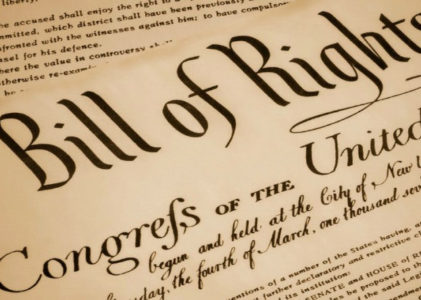 liberty,
he accused shall enjoy the right to a s
mitted, which district shall have been previously
nfronted with the witnesses against him; to have compulso
sel for his defence.
here the value in controversy shall
otherwise re-exam
Bill of Rights
Congreſs OF THE United
begun and held at the City of New Y
sday, the fourth of March, one thousand sev
ventions of a number of the States having, a
further declaratory and restrictive cl
NATE and HOUSE of R
be proposed to the